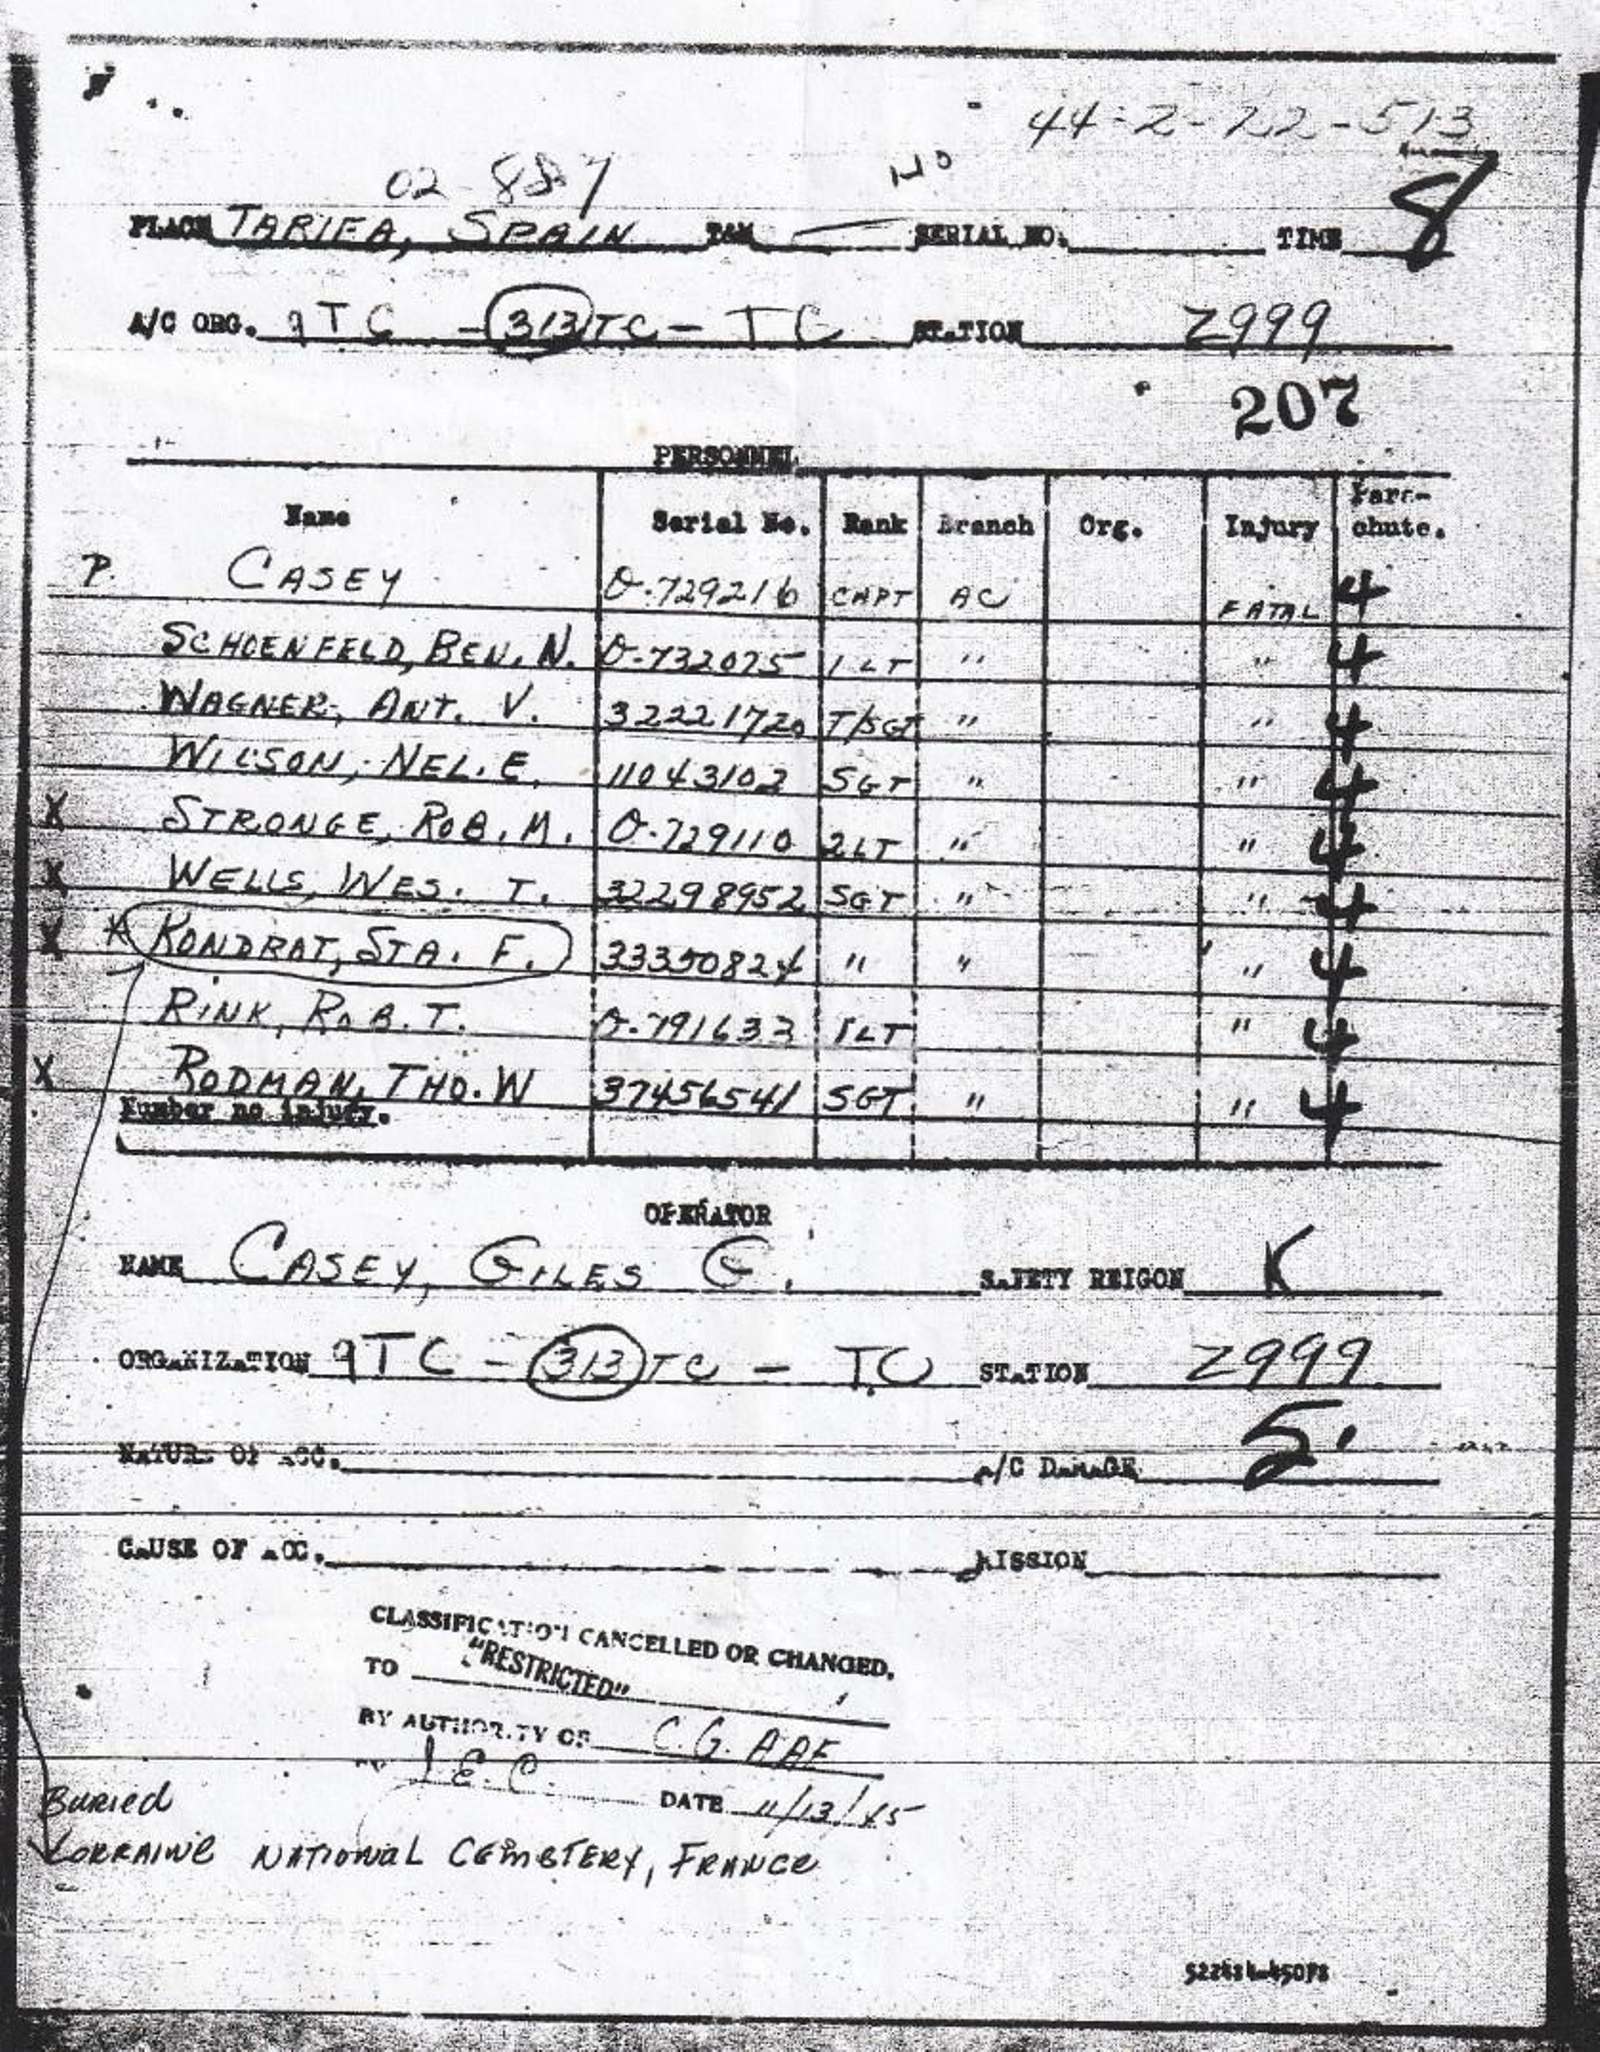 44-2-22-513
02-887 NO
PLACE TARIFA, SPAIN TAM — SERIAL NO. TIME 8
A/C ORG. 9TC - 313 TC - TC STATION Z999
207
PERSONNEL
Name Serial No. Rank Branch Org. Injury Para-chute.
P. CASEY O-729216 CAPT AC FATAL 4
SCHOENFELD, BEN. N. O-732075 1LT " " 4
WAGNER, ANT. V. 32221720 T/SGT " " 4
WILSON, NEL. E. 11043102 SGT " " 4
X STRONGE, ROB. M. O-729110 2LT " " 4
X WELLS, WES. T. 32298952 SGT " " 4
X * KONDRAT, STA. F. 33350824 " " " 4
RINK, ROB. T. O-791633 1LT " 4
X RODMAN, THO. W 37456541 SGT " " 4
Number no injury.
OPERATOR
NAME CASEY, GILES G. SAFETY REIGON K
ORGANIZATION 9TC - 313 TC - TC STATION Z999
NATURE OF ACC. A/C DAMAGE 5
CAUSE OF ACC. MISSION
CLASSIFICATION CANCELLED OR CHANGED.
TO "RESTRICTED"
BY AUTHORITY OF C.G. AAF
J.E.C. DATE 11/13/45
Buried
Lorraine National Cemetery, France